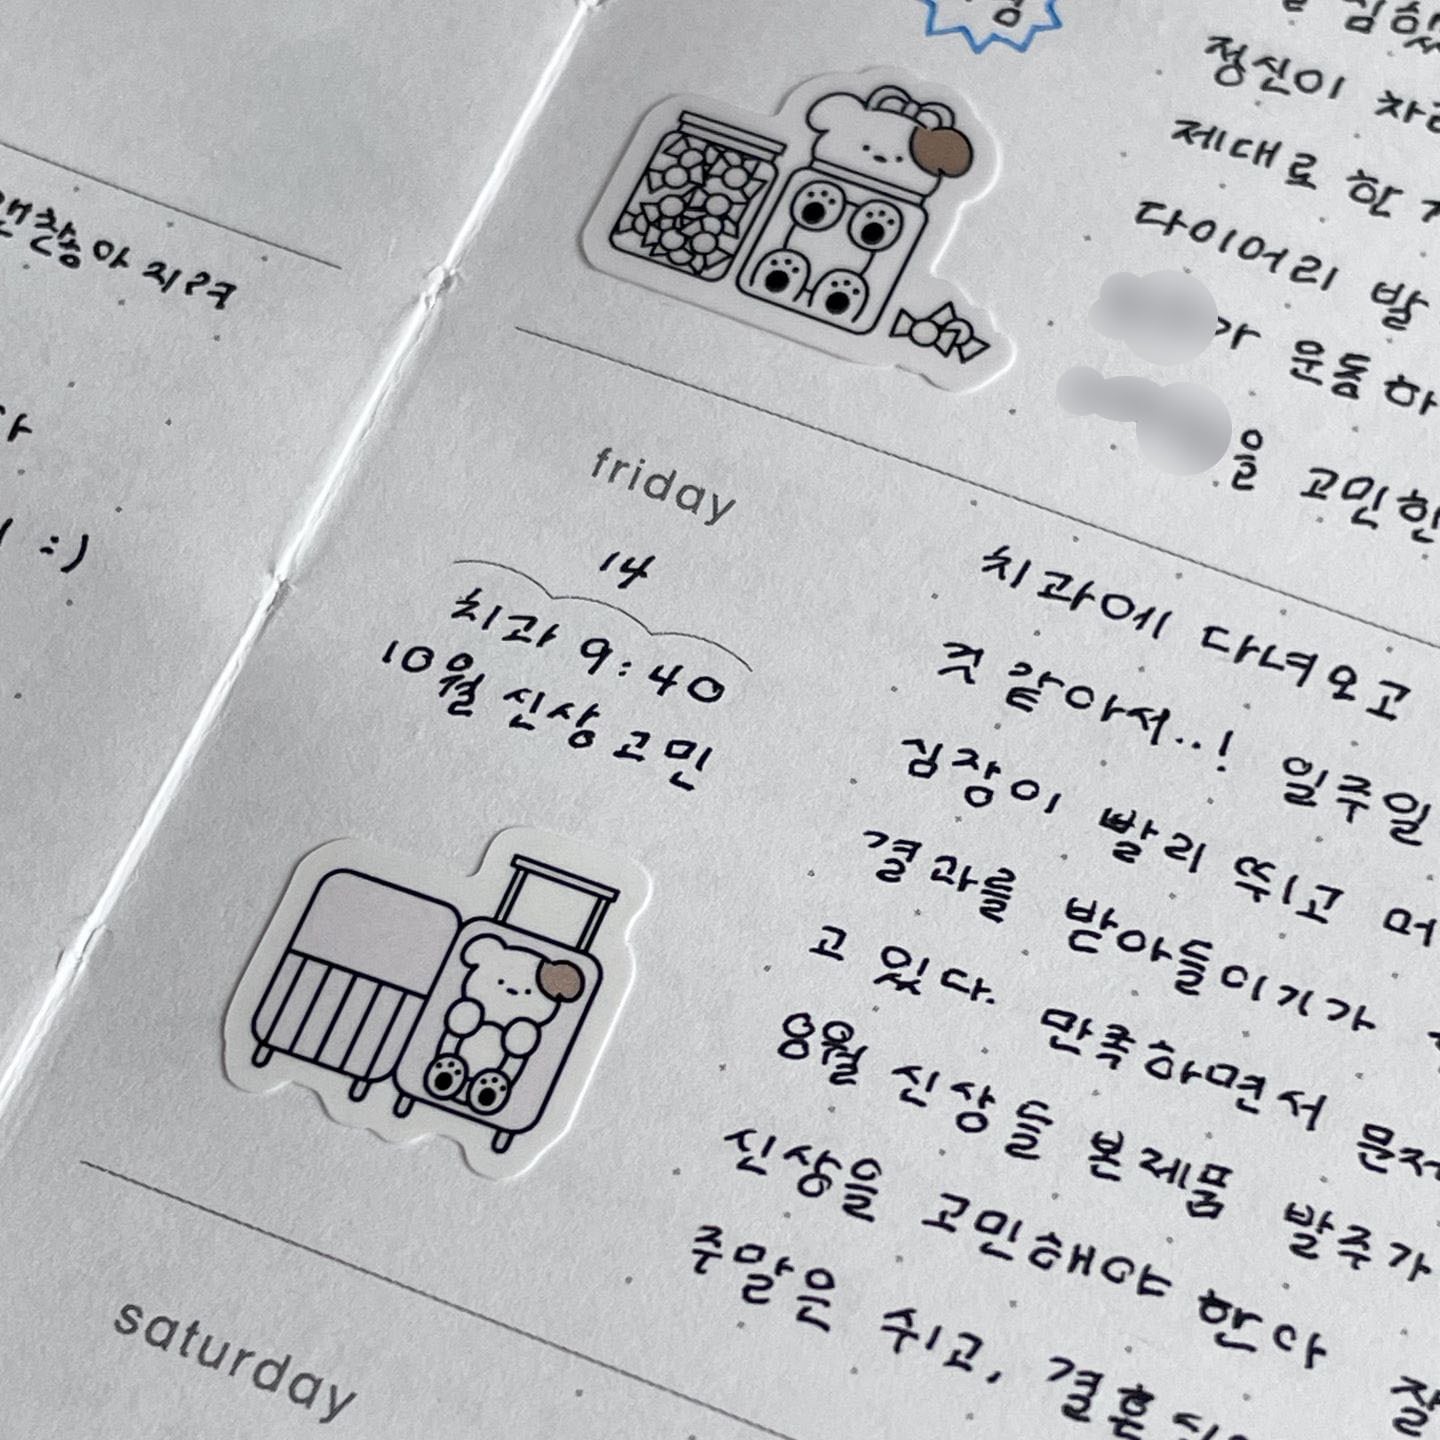 정신이
제대로 한
다이어리 발
운동하
을 고민한
friday
14
치과 9:40
10월 신상 고민
치과에 다녀오고
것 같아서..! 일주일
심장이 빨리 뛰고 머
결과를 받아들이기가
고 있다. 만족하면서
8월 신상들 본제품 발주가
신상을 고민해야 한다 잘
주말은 쉬고, 결혼식
saturday
:)